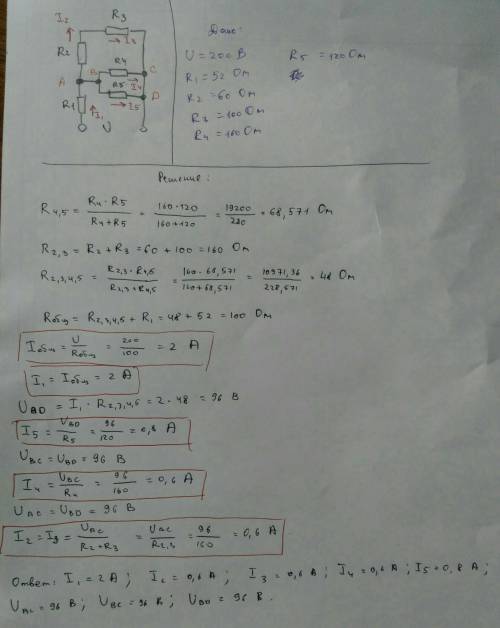 I₂ R₃
I₃
R₂
R₄
A B C
I₄
R₅
D
R₁ I₁ I₅
U
Дано:
U = 200 В R₅ = 120 Ом
R₁ = 52 Ом
R₂ = 60 Ом
R₃ = 100 Ом
R₄ = 160 Ом
Решение:
R₄,₅ = R₄ · R₅ / R₄ + R₅ = 160 · 120 / 160 + 120 = 19200 / 280 = 68,571 Ом
R₂,₃ = R₂ + R₃ = 60 + 100 = 160 Ом
R₂,₃,₄,₅ = R₂,₃ · R₄,₅ / R₂,₃ + R₄,₅ = 160 · 68,571 / 160 + 68,571 = 10971,36 / 228,571 = 48 Ом
Rобщ = R₂,₃,₄,₅ + R₁ = 48 + 52 = 100 Ом
Iобщ = U / Rобщ = 200 / 100 = 2 А
I₁ = Iобщ = 2 А
UBD = I₁ · R₂,₃,₄,₅ = 2 · 48 = 96 В
I₅ = UBD / R₅ = 96 / 120 = 0,8 А
UBC = UBD = 96 В
I₄ = UBC / R₄ = 96 / 160 = 0,6 А
UAC = UBD = 96 В
I₂ = I₃ = UAC / R₂ + R₃ = UAC / R₂,₃ = 96 / 160 = 0,6 А
Ответ: I₁ = 2 А ; I₂ = 0,6 А ; I₃ = 0,6 А ; I₄ = 0,6 А ; I₅ = 0,8 А ;
UAC = 96 В ; UBC = 96 В ; UBD = 96 В .